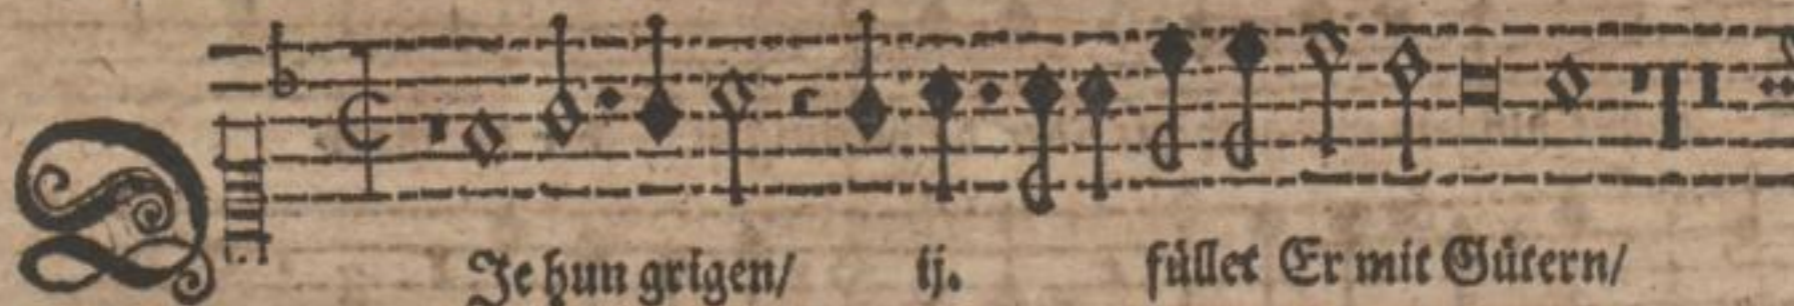 DJe hun grigen/ ij. füllet Er mit Gütern/